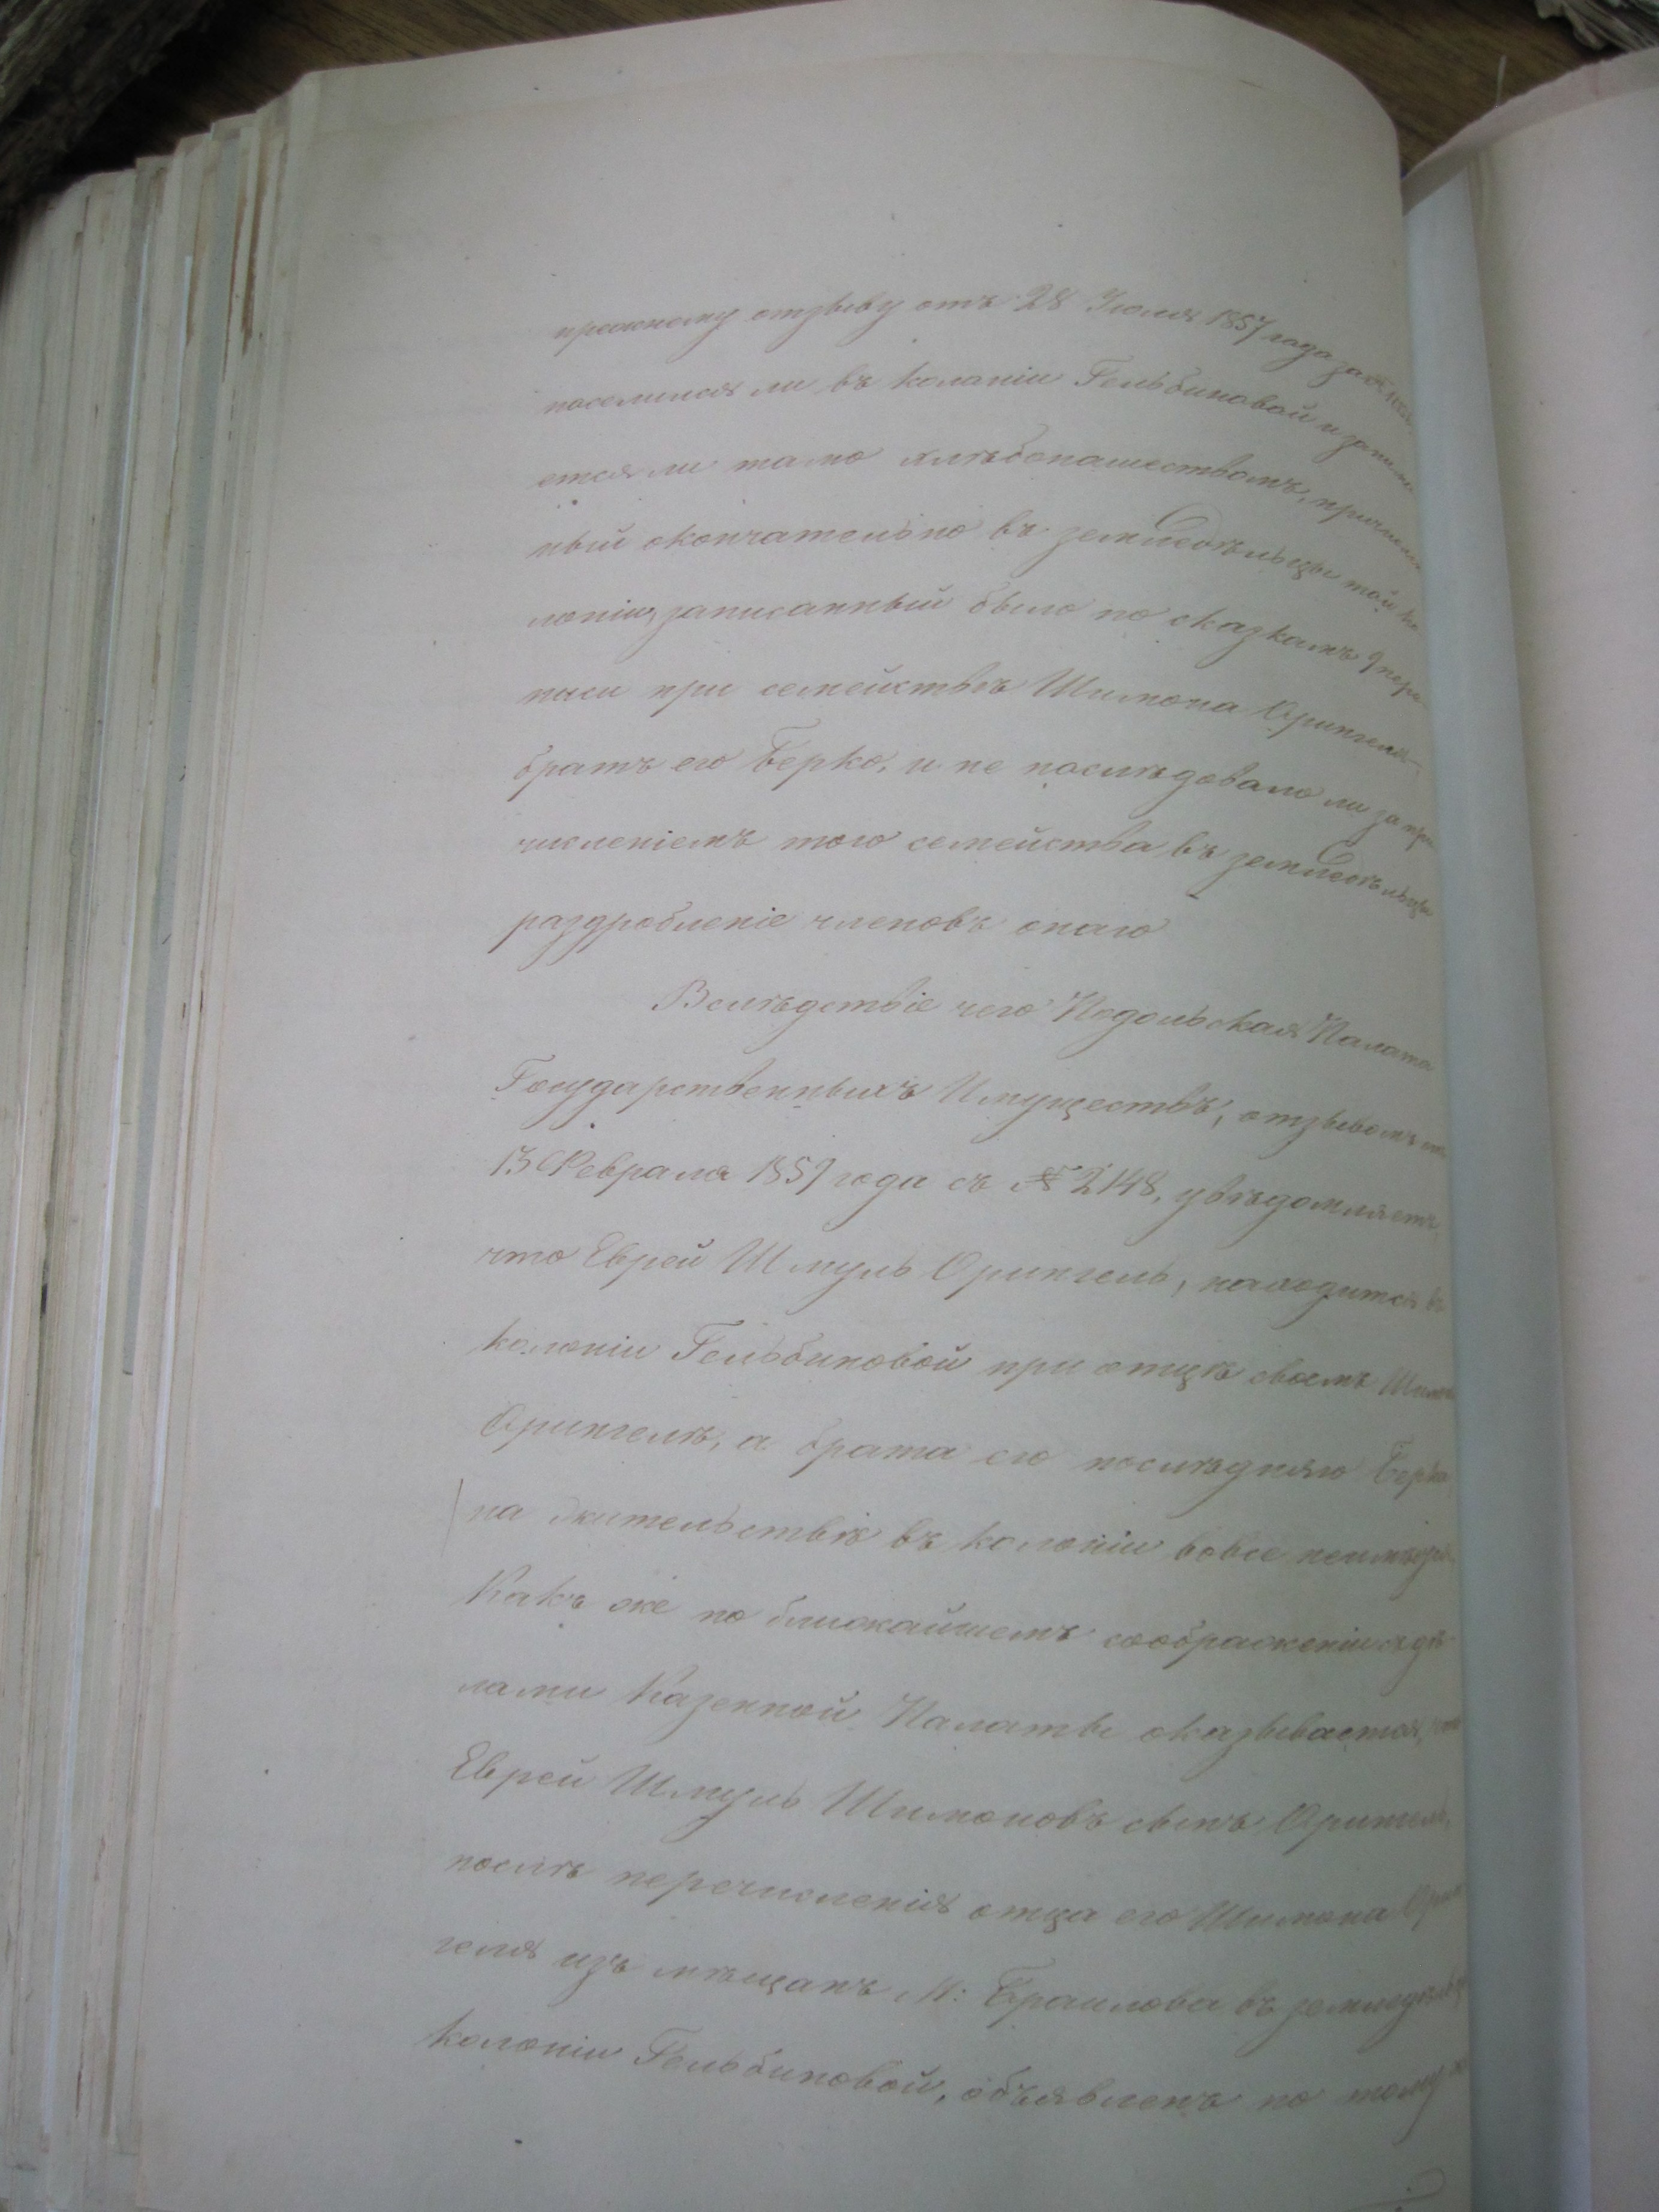 прежнему отзыву отъ 28 Іюля 1857 года за №
поселился ли въ колоніи Гельбиновой и занима
ется ли тамо хлѣбопашествомъ, причислен
ный окончательно въ земледѣльцы той ко
лоніи, записанный было по сказкамъ 9 пере
писи при семействѣ Шимона Орингеля
братъ его Берко, и не послѣдовало ли за при
численіемъ того семейства въ земледѣльцы
раздробленіе членовъ онаго
Вслѣдствіе чего Подольская Палата
Государственныхъ Имуществъ, отзывомъ отъ
13 Февраля 1859 года съ № 2148, увѣдомляетъ,
что Еврей Шмуль Орингель, находится въ
колоніи Гельбиновой при отцѣ своемъ Шимонѣ
Орингелѣ, а брата его послѣдняго Берка
на жительствѣ въ колоніи вовсе неимѣется.
Какъ же по ближайшемъ соображеніи съ дѣ
лами Казенной Палаты оказывается, что
Еврей Шмуль Шимоновъ сынъ Орингель,
послѣ перечисленія отца его Шимона Орин
геля изъ мѣщанъ М: Браилова въ земледѣльцы
колоніи Гельбиновой, объявленъ по тому